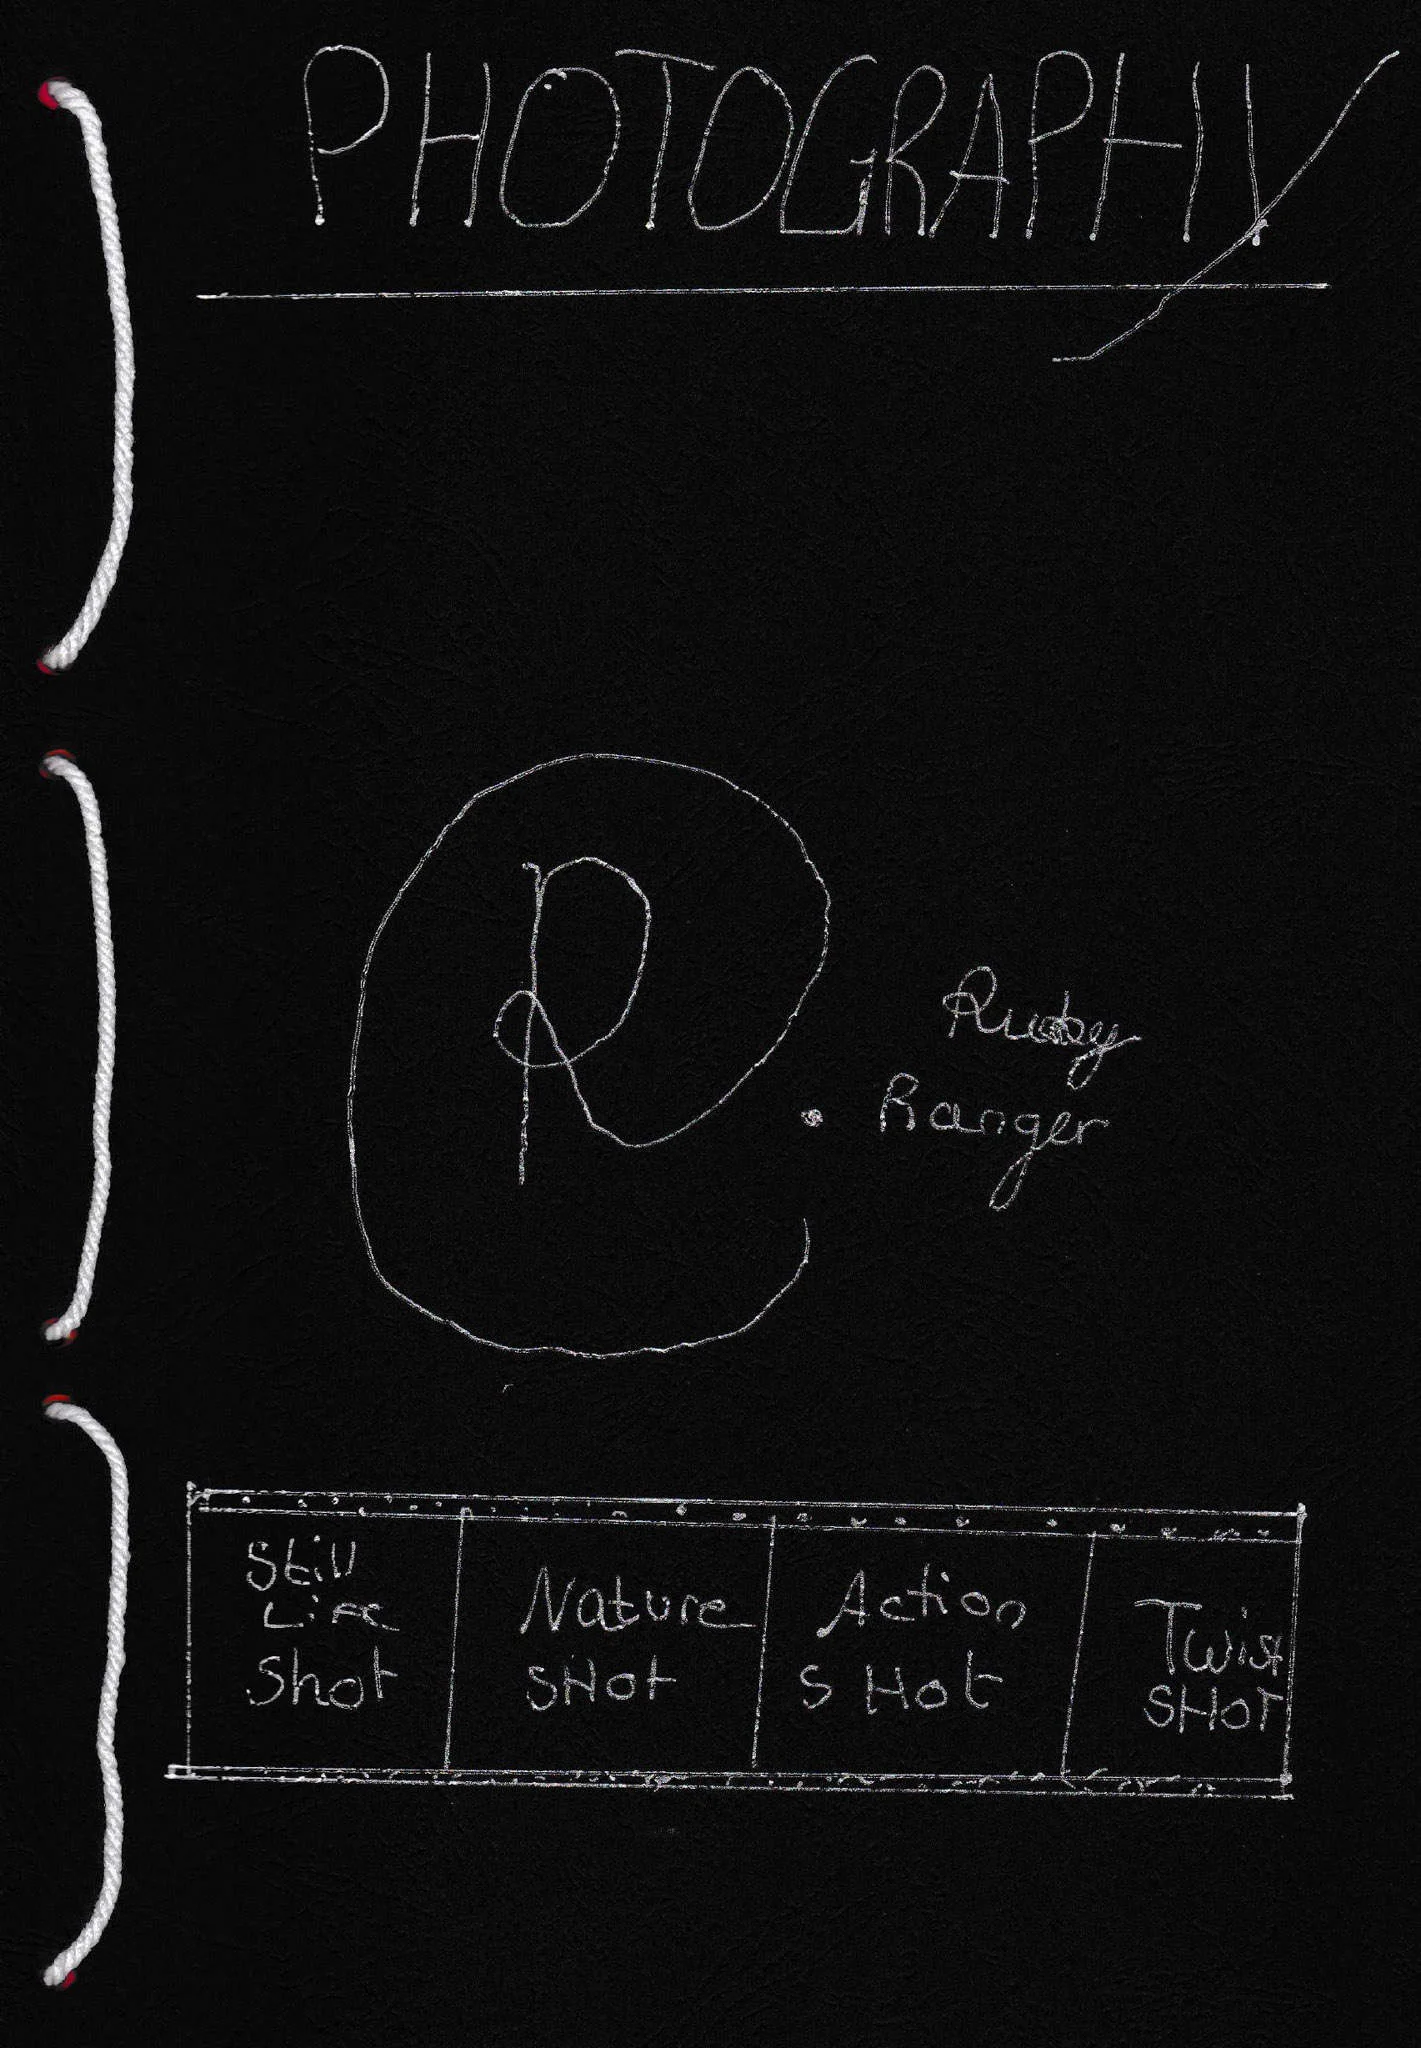 PHOTOGRAPHY
R
Ruby
Ranger
Still
Life
Shot
Nature
SHot
Action
SHot
Twist
SHOT